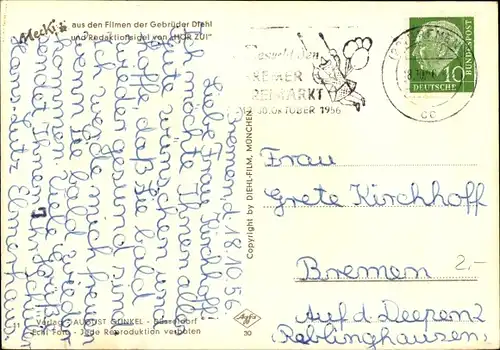 Mecki aus den Filmen der Gebrüder Diehl
und Redaktionsigel von „HÖR ZU!"
Besucht den
BREMER
FREIMARKT
OKTOBER 1956
DEUTSCHE BUNDESPOST
10
CC
Bremen, d. 18.10.56
Liebe Frau Kirchhoff!
Ich möchte Ihnen alles
Gute wünschen und
hoffe, daß Sie bald
wieder gesund sind.
Ich werde mich freuen
wenn Sie bald wieder
kommen. Liebe Grüße
sendet Ihnen Ihr Schüler
Hans-Lutz
Copyright by DIEHL-FILM, MÜNCHEN
Frau
Grete Kirchhoff
Bremen
Auf d. Deepen 2
(Reblinghausen)
2,-
11 Verlag AUGUST GUNKEL · Düsseldorf
Echt Foto - Jede Reproduktion verboten
Agfa
30